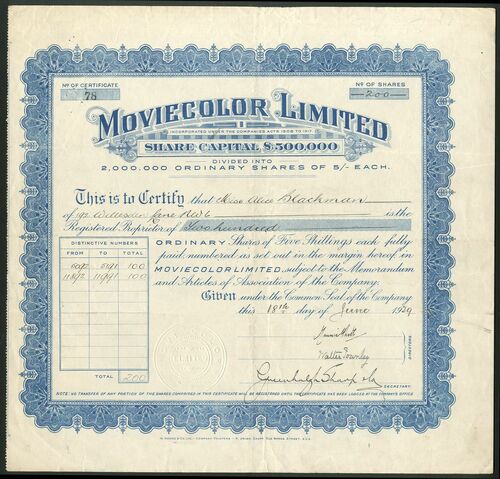 Nº OF CERTIFICATE
78
Nº OF SHARES
200
MOVIECOLOR LIMITED
INCORPORATED UNDER THE COMPANIES ACTS 1908 TO 1917.
SHARE CAPITAL £500,000
DIVIDED INTO
2,000,000 ORDINARY SHARES OF 5/- EACH.
This is to Certify that Miss Alice Blackman
of 192 Willesden Lane NW6 is the
Registered Proprietor of Two hundred
DISTINCTIVE NUMBERS
FROM TO TOTAL
100
100
TOTAL 200
ORDINARY Shares of Five Shillings each fully
paid, numbered as set out in the margin hereof in
MOVIECOLOR LIMITED, subject to the Memorandum
and Articles of Association of the Company.
Given under the Common Seal of the Company
this 18th day of June 1929
Walter Townley
DIRECTORS
SECRETARY.
NOTE: NO TRANSFER OF ANY PORTION OF THE SHARES COMPRISED IN THIS CERTIFICATE WILL BE REGISTERED UNTIL THE CERTIFICATE HAS BEEN LODGED AT THE COMPANY'S OFFICE